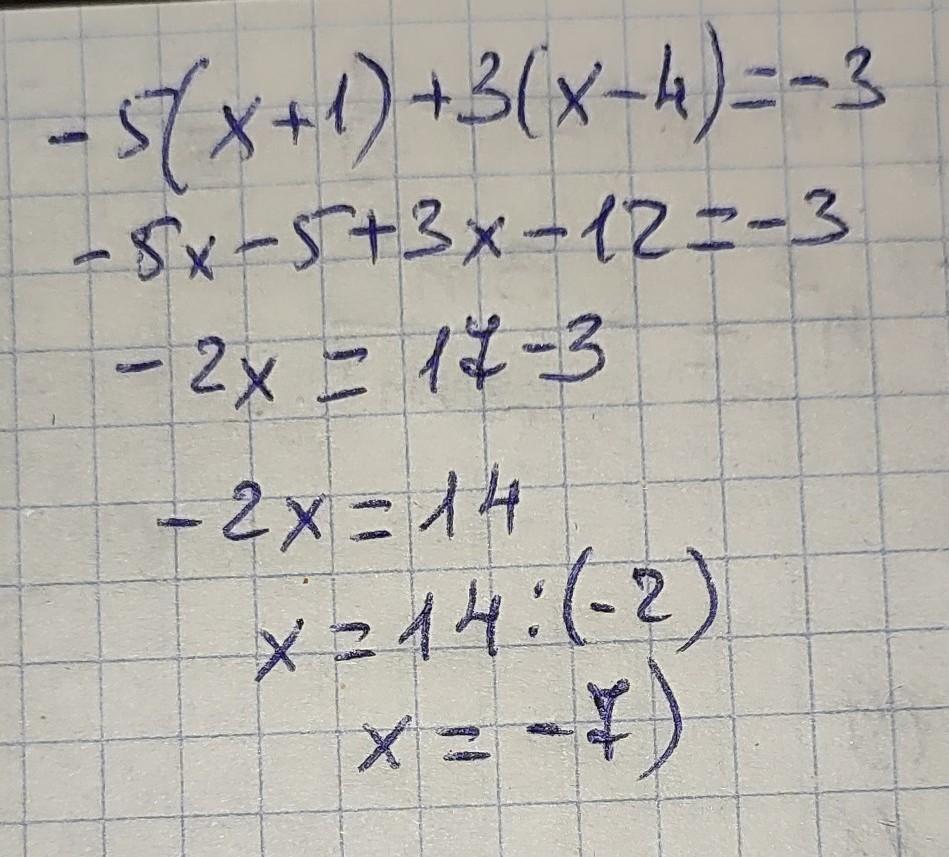 -5(x+1)+3(x-4)=-3
-5x-5+3x-12=-3
-2x=17-3
-2x=14
x=14:(-2)
x=-7)